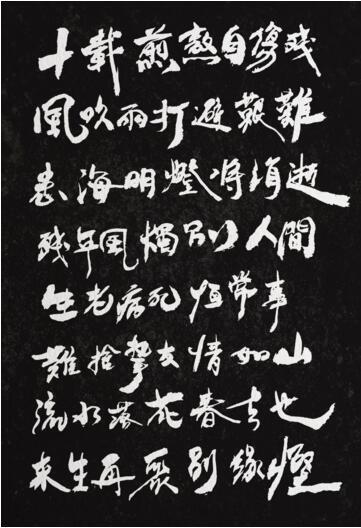 十載煎熬自傷殘
風吹雨打避艱難
海明燈將消逝
殘年風燭別人間
生老病死恒常事
難捨摯友情如山
流水落花春去也
来生再聚別緣慳